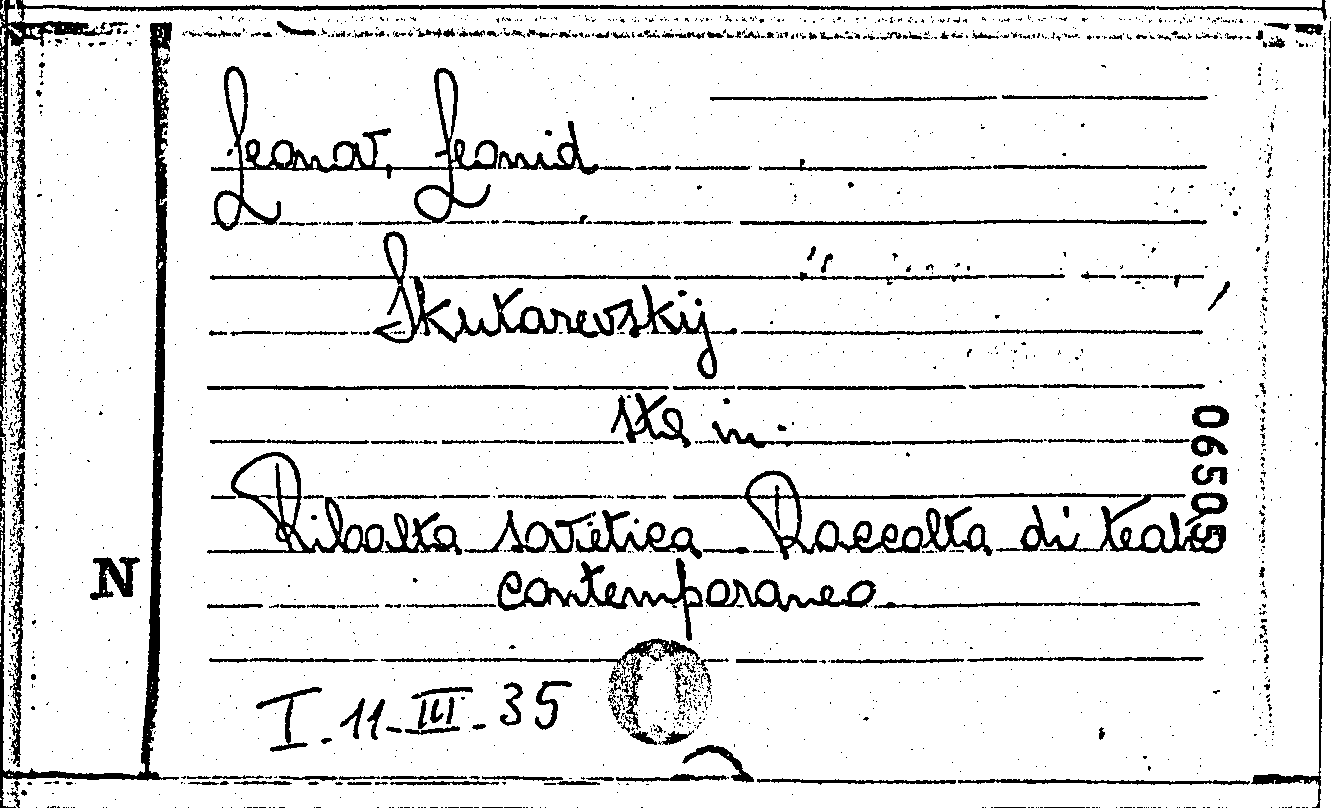 Leonov, Leonid
Skutarevskij
sta in:
Ribalta sovietica. Raccolta di teatro
contemporaneo.
I.11.III.35
N
06505